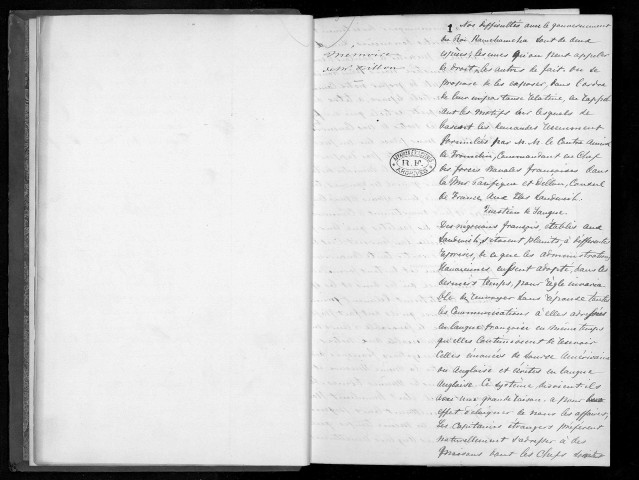 Mémoire
de Mr. Dillon
1
Nos difficultés avec le gouvernement
du Roi Kamehameha sont de deux
espèces; les unes qu'on peut appeler
de droit, les autres de fait. On se
propose de les exposer, dans l'ordre
de leur importance relative, en rappel-
ant les motifs sur lesquels se
basent les demandes récemment
formulées par M. M. le Contre Amiral
de Tromelin, Commandant en Chef
des forces Navales françaises dans
la Mer Pacifique et Dillon, Consul
de France aux Iles Sandwich.
Question de Langue.
Des négocians français, établis aux
Sandwich, s'étaient plaints, à différentes
reprises, de ce que les administrations
Hawaiiennes eussent adopté, dans les
derniers temps, pour règle invaria-
ble de renvoyer sans réponse toutes
les Communications à elles adressées
en langue française en même temps
qu'elles continuaient de recevoir
celles émanées de source Américaine
ou Anglaise et écrites en langue
Anglaise. Ce système, disaient-ils
avec une grande raison, a pour
effet d'éloigner de nous les affaires,
Les Capitaines étrangers préférant
naturellement s'adresser à des
maisons dont les Chefs
R. F.
ARCHIVES